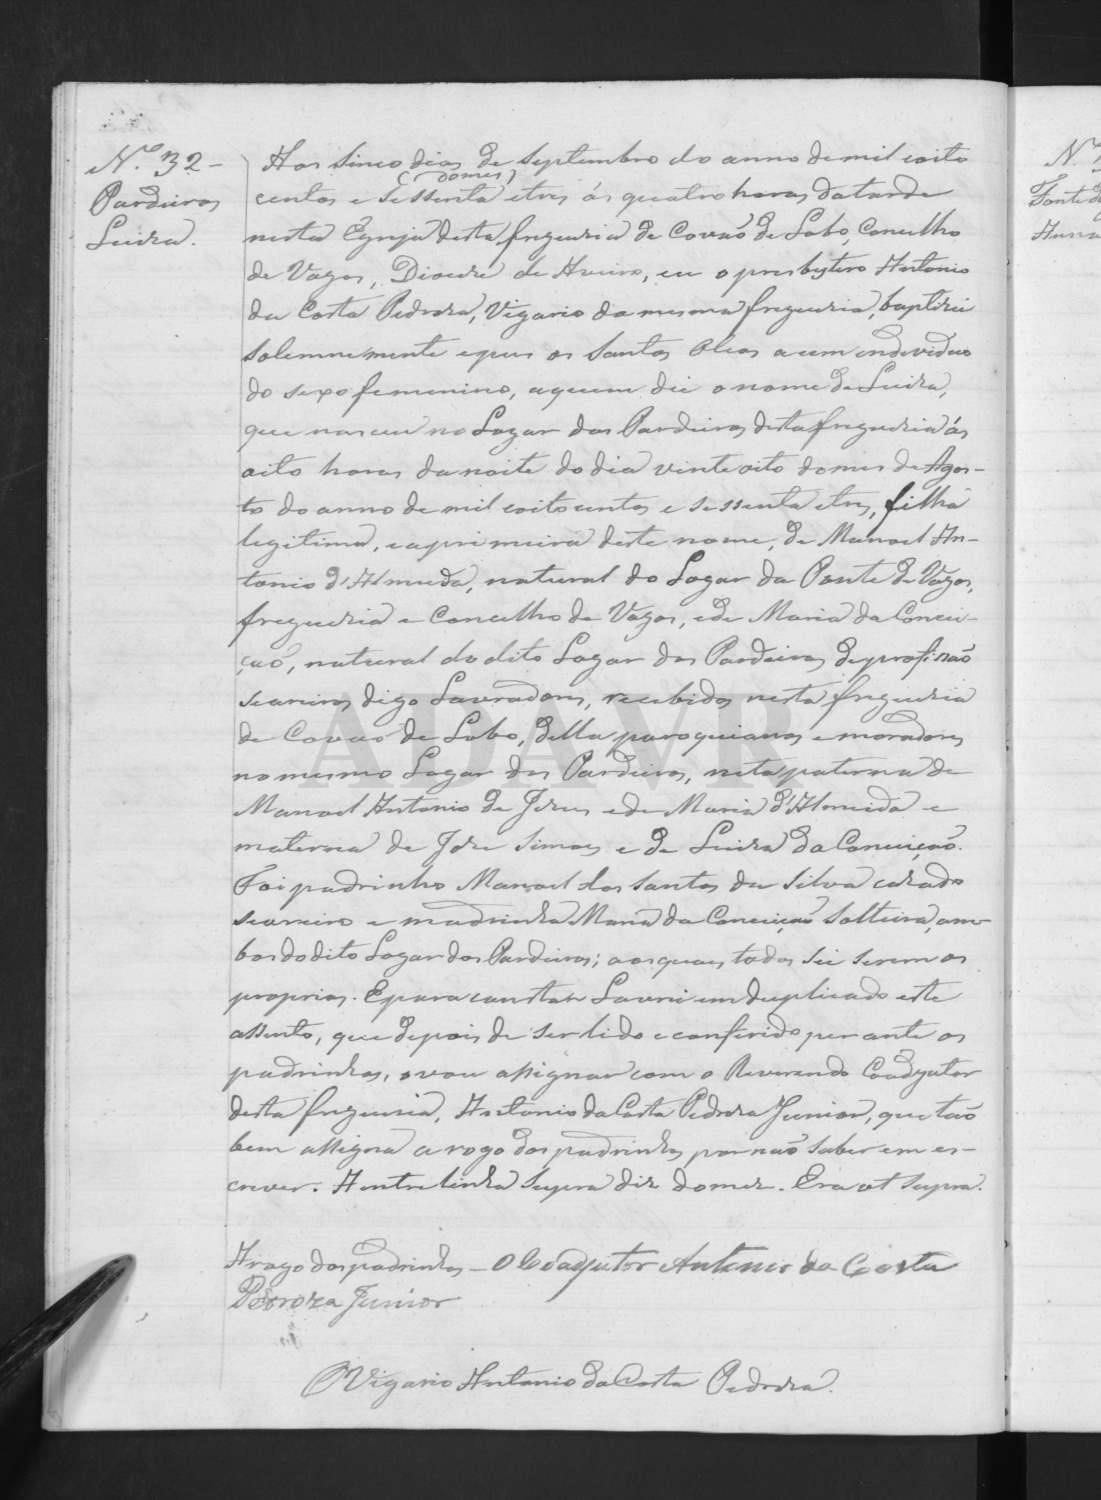 Nº 32 -
Pardieiros
Luiza.
Aos sinco dias de Septembro do anno de mil oito
(domes)
centos e sessenta etres ás quatro horas datarde
nesta Egreja desta freguezia de Covaõ de Lobo, Concelho
de Vagos, Diocese de Aveiro, eu o presbytero Antonio
da Costa Pedroza, Vigario da mesma freguezia, baptizei
Solemnemente epuz os Santos Oleos a um endeviduo
do sexo femenino, aquem dei o nome de Luiza,
que nasceu no Logar dos Pardieiros desta freguezia ás
oito horas da noite do dia vinte oito do mes de Agos-
to do anno de mil oitocentos e sessenta etres, filha
legitima, eaprimeira deste nome, de Manoel An-
tonio d'Almeida, natural do Logar da Ponte de Vagos,
freguezia e Concelho de Vagos, ede Maria da Concei-
çaõ, natural do dito Logar dos Pardieiros de profissaõ
seareiros digo Lavradores, recebidos nesta freguezia
de Covaõ de Lobo, della paroquianos e moradores
no mesmo Logar dos Pardieiros, neta paterna de
Manoel Antonio de Jezus ede Maria d'Almeida e
materna de Joze Simoes e de Luiza da Conceiçaõ.
Foi padrinho Manoel dos Santos da Silva cazado
seareiro e madrinha Maria da Conceiçaõ Solteira, am-
bos do dito Logar dos Pardieiros; aosquaes todos sei serem os
proprios. Epara constar Lavrei em duplicado este
assento, que depois de ser lido e conferido per ante os
padrinhos, o vou assignar com o Reverendo Coadjutor
desta freguezia, Antonio da Costa Pedroza Junior, que taõ
bem assigna a rogo dos padrinhos por naõ saberem es-
crever. A entrelinha supra diz domez. Era ut supra.
A rogo dos padrinhos - O Coadjutor Antonio da Costa
Pedroza Junior
O Vigario Antonio da Costa Pedroza.
ADAVR
Nº
Fonte
Anna